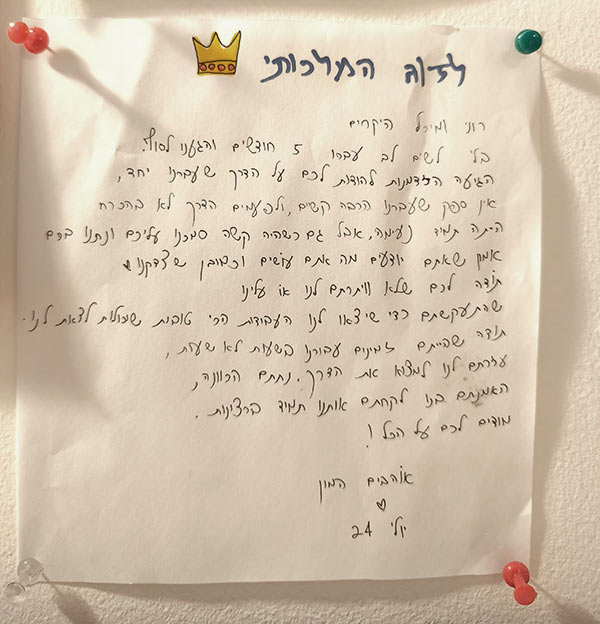 לזוג המלכותי
רוני ומיכל היקרים
בלי לשים לב עברו 5 חודשים והגענו לסוף.
הגיעה הזדמנות להודות לכם על הדרך שעברנו יחד,
אין ספק שעברנו הרבה קשים, ולפעמים הדרך לא בהכרח
היתה תמיד נעימה, אבל גם כשהיה קשה סמכנו עליכם ונתנו בכם
אמון שאתם יודעים מה אתם עושים וכמובן שצדקנו ♥
תודה לכם שלא וויתרתם לנו או עלינו
שהתעקשתם כדי שיצאו לנו העבודות הכי טובות שיכולות לצאת לנו.
תודה שהייתם זמינים עבורנו בשעות לא שעות,
עזרתם לנו למצוא את הדרך, נתתם הכוונה,
האמנתם בנו לקחתם אותנו תמיד ברצינות.
מודים לכם על הכל!
אוהבים המון
♥
יולי 24